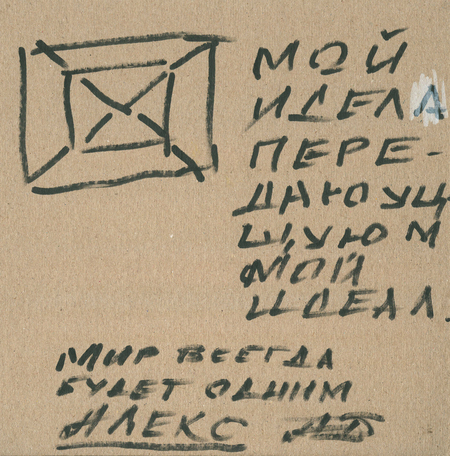 МОЙ
ИДЕЛА
ПЕРЕ-
ДАЮУЩ
ЩУЮ М
МОЙ
ИДЕАЛ.
МИР ВСЕГДА
БУДЕТ ОДНИМ
АЛЕКС